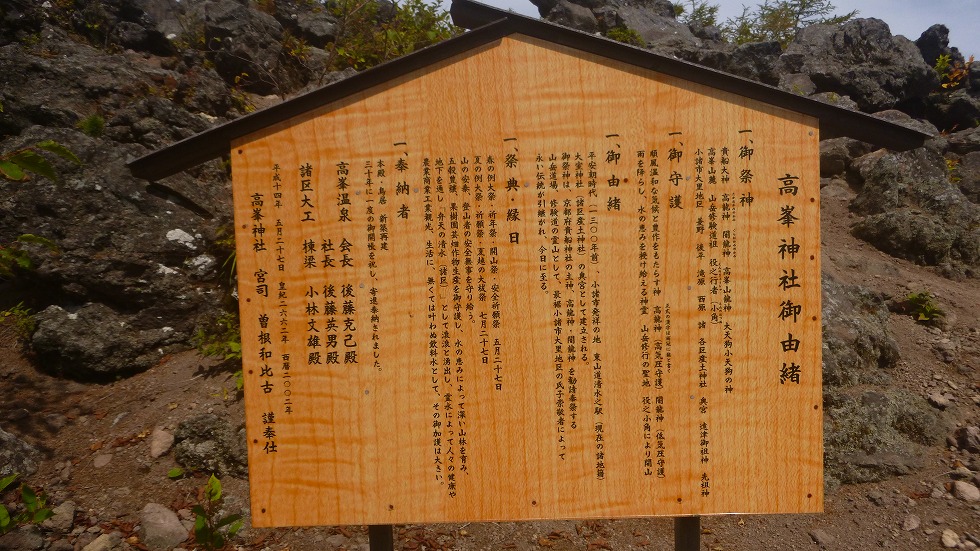 高峯神社御由緒
一、御祭神
貴船大神 高龗神・闇龗神 高峯山龗神 大天狗小天狗の神
高峯山麓 山岳修験道祖 役之行者(小角)
小諸市大里地区 菱野 後平 滝原 西原 諸 各巨産土神社 奥宮 遠津御祖神 先祖神
一、御守護
順風温和な気候と豊作をもたらす神 高龗神(高気圧守護)闇龗神(低気圧守護)
雨を降らし、水の恵みを授け給える神霊 山岳修行の聖地 役之小角により開山
一、御由緒
平安朝時代(一三〇〇年前)、小諸市発祥の地 東山道清水之駅(現在の諸地籍)
大室神社(諸区産土神社)の奥宮として建立される。
御祭神は、京都府貴船神社の主神、高龗神・闇龗神を勧請奉祭する
山岳道場、修験道の霊山として、
永い伝統が引継がれ、今日に至る。
一、祭典・縁日
春の例大祭・祈年祭・開山祭・安全祈願祭 五月二十七日
夏の例大祭・祈願祭・夏越の大祓祭 七月二十七日
山の安泰、登山者の安全無事を守り給う。
五穀豊穣、果樹園芸畑作物生産を御守護し、水の恵みによって深い山林を育み、
地下を通し、弁天の清水(諸区)として滾滾と湧出し、霊水によって人々の健康や
農業商業工業観光、生活に、無くては叶わぬ飲料水として、その御加護は大きい。
一、奉納者
本殿・鳥居 新築再建
三十年に一度の御開帳を祝し、寄進奉納されました。
高峯温泉 会長 後藤克己殿
社長 後藤英男殿
諸区大工 棟梁 小林文雄殿
平成十四年 五月二十七日 皇紀二六六二年 西暦二〇〇二年
高峯神社 宮司 曽根和比古 謹奉仕